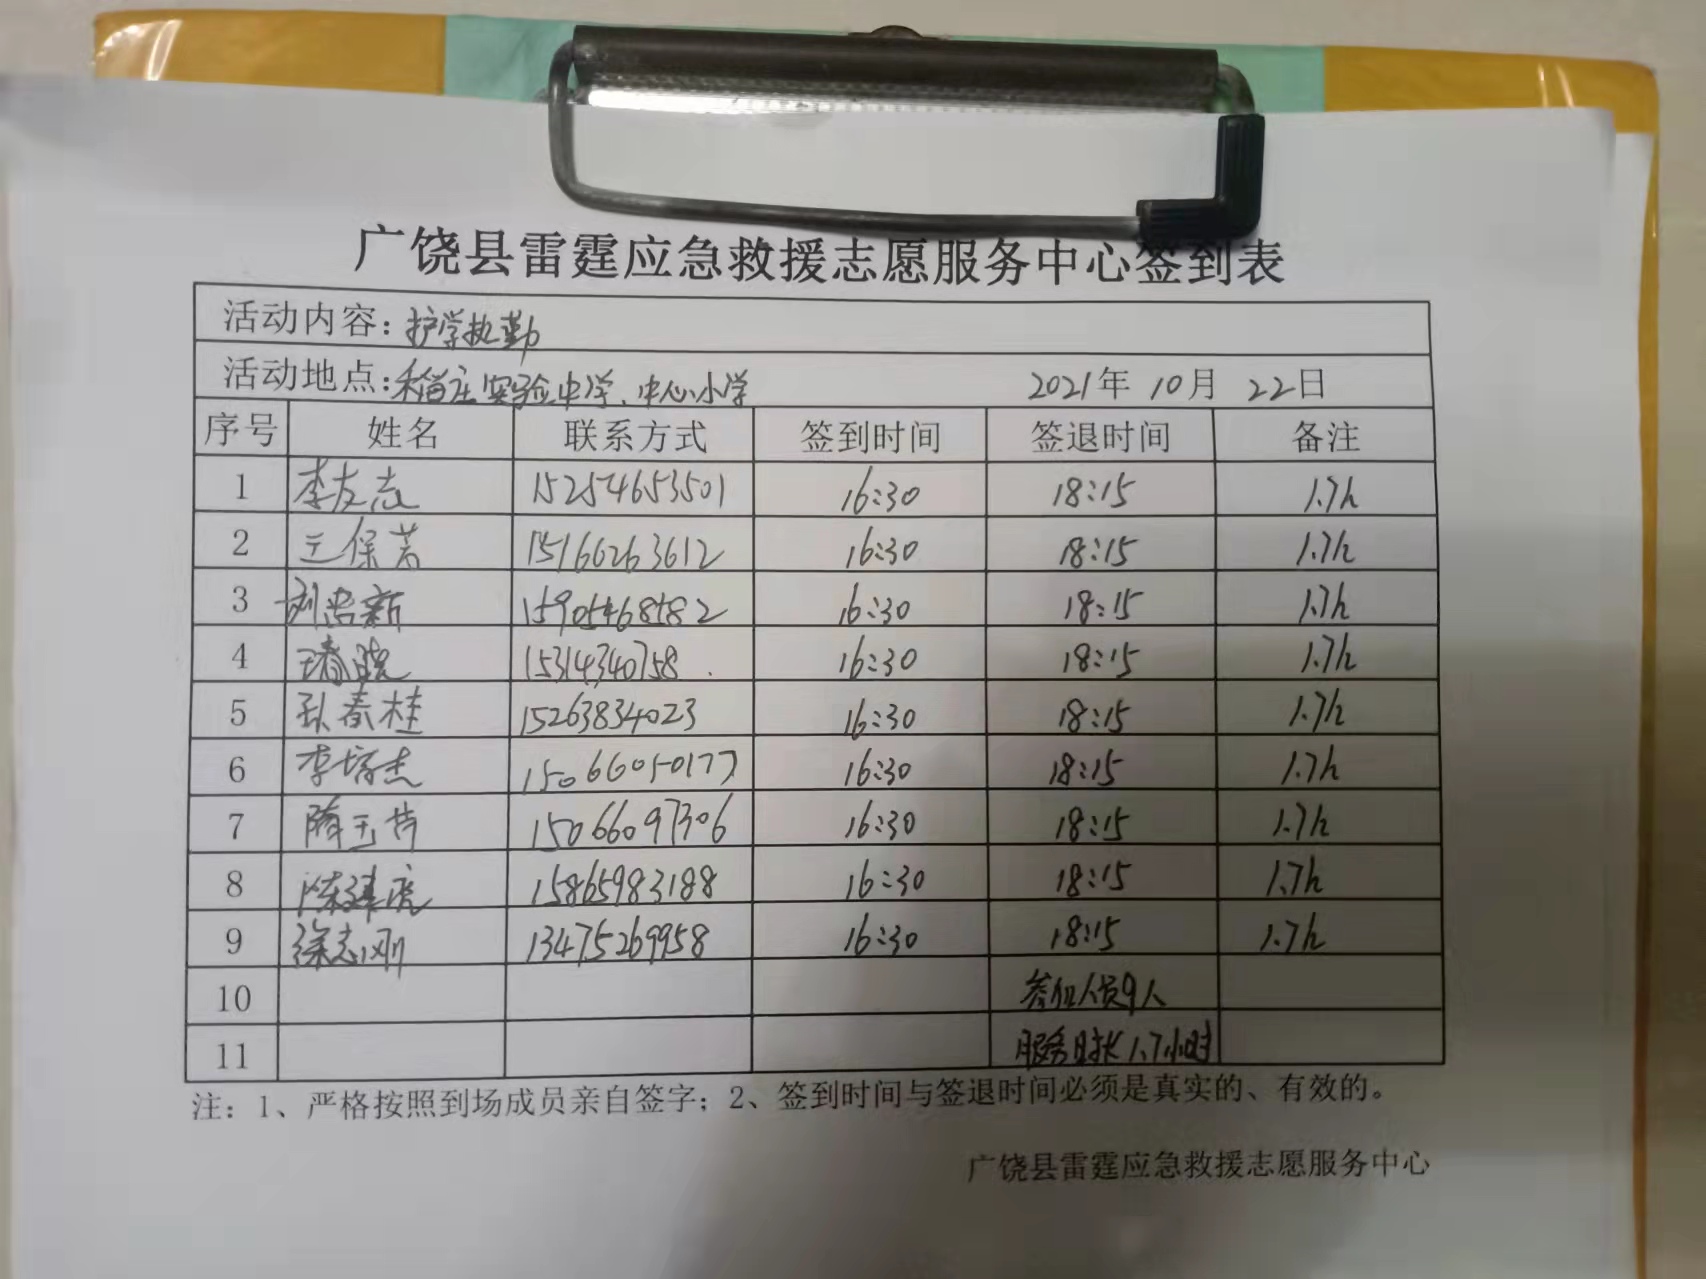 广饶县雷霆应急救援志愿服务中心签到表
活动内容：护学执勤
活动地点：稻庄实验中学、中心小学 2021年 10月 22日
序号 姓名 联系方式 签到时间 签退时间 备注
1 李友志 15254653501 16:30 18:15 1.7h
2 王保芳 15166263612 16:30 18:15 1.7h
3 刘浩新 15905468582 16:30 18:15 1.7h
4 晓 15314340758 16:30 18:15 1.7h
5 孙春桂 15263834023 16:30 18:15 1.7h
6 李培杰 15066050177 16:30 18:15 1.7h
7 隋玉 15066097306 16:30 18:15 1.7h
8 陈建虎 15865983188 16:30 18:15 1.7h
9 徐志刚 13475269958 16:30 18:15 1.7h
10 参加人员9人
11 服务时长1.7小时
注：1、严格按照到场成员亲自签字；2、签到时间与签退时间必须是真实的、有效的。
广饶县雷霆应急救援志愿服务中心